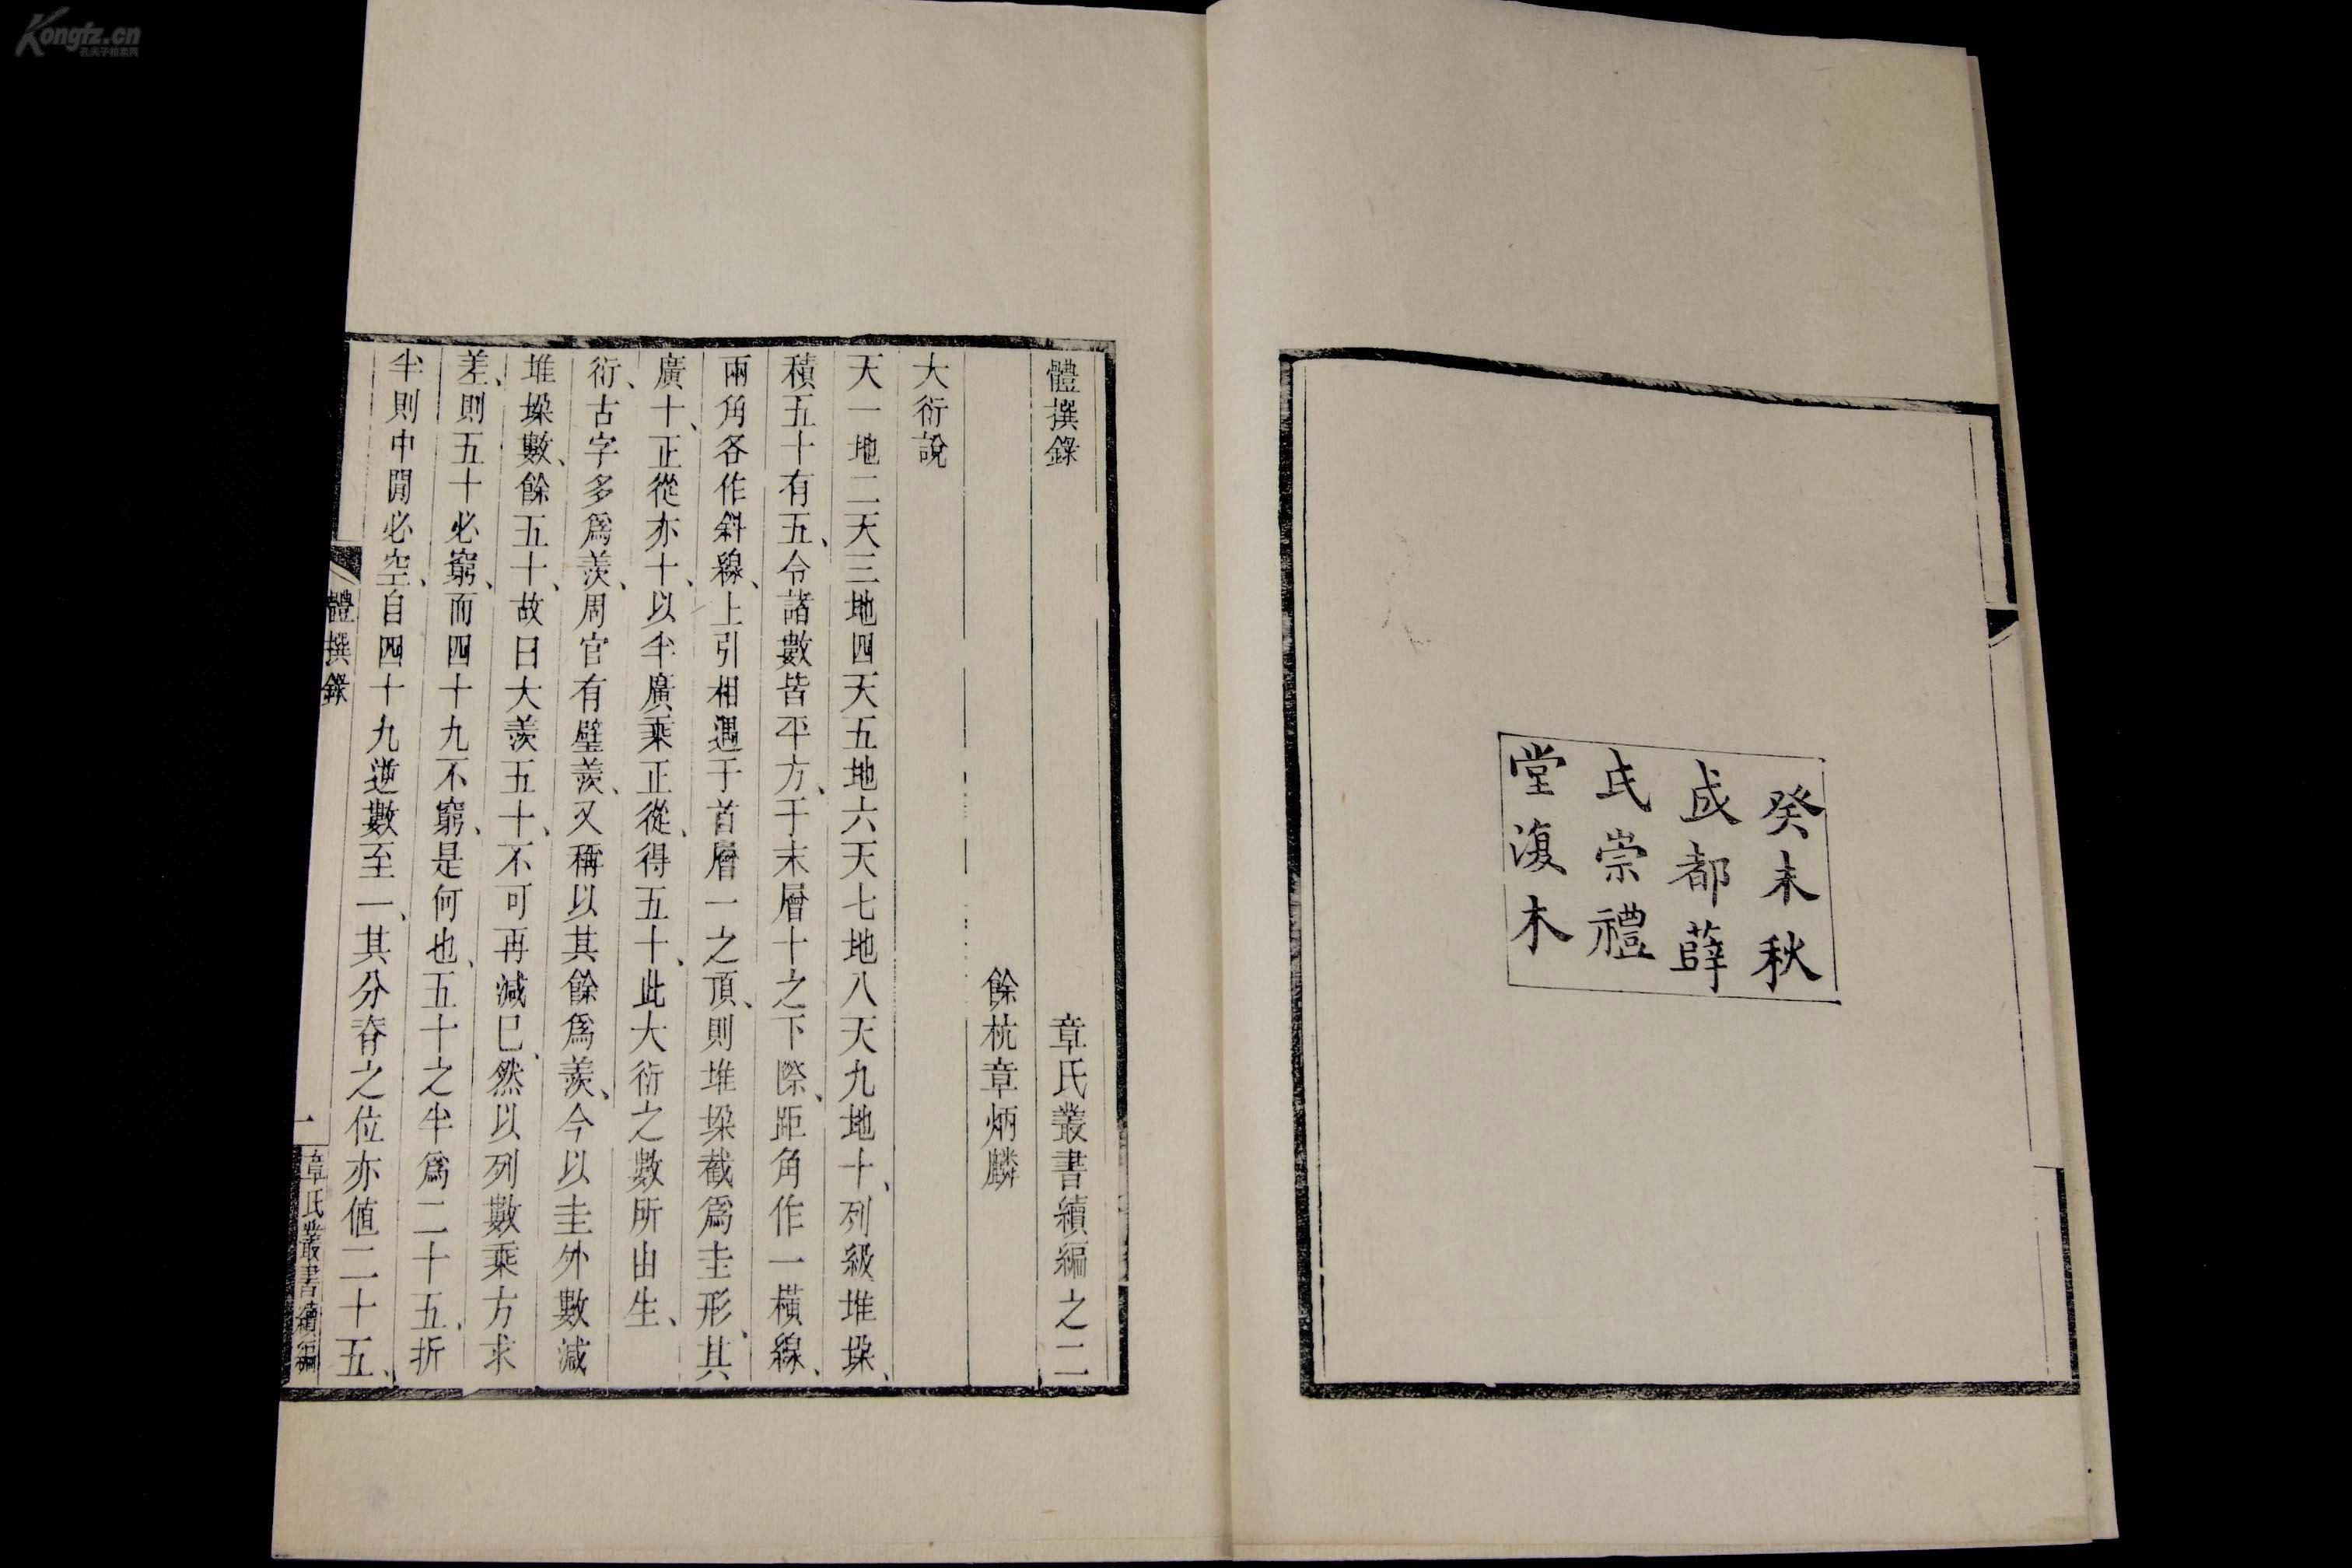 Kongfz.cn
孔夫子拍卖网
癸未秋
成都薛
氏崇禮
堂復木
體撰錄 章氏叢書續編之二
餘杭章炳麟
大衍說
天一地二天三地四天五地六天七地八天九地十、列級堆垜、
積五十有五、令諸數皆平方、于末層十之下際、距角作一橫線、
兩角各作斜線、上引相遇于首層一之頂、則堆垜截爲圭形、其
廣十、正從亦十、以半廣乘正從、得五十、此大衍之數所由生、
衍、古字多爲羨、周官有璧羨、又稱以其餘爲羨、今以圭外數減
堆垜數、餘五十、故曰大羨五十、不可再減巳、然以列數乘方求
差、則五十必窮、而四十九不窮、是何也、五十之半爲二十五、折
半則中閒必空、自四十九逆數至一、其分脊之位亦値二十五、
體撰錄
一
章氏叢書續編